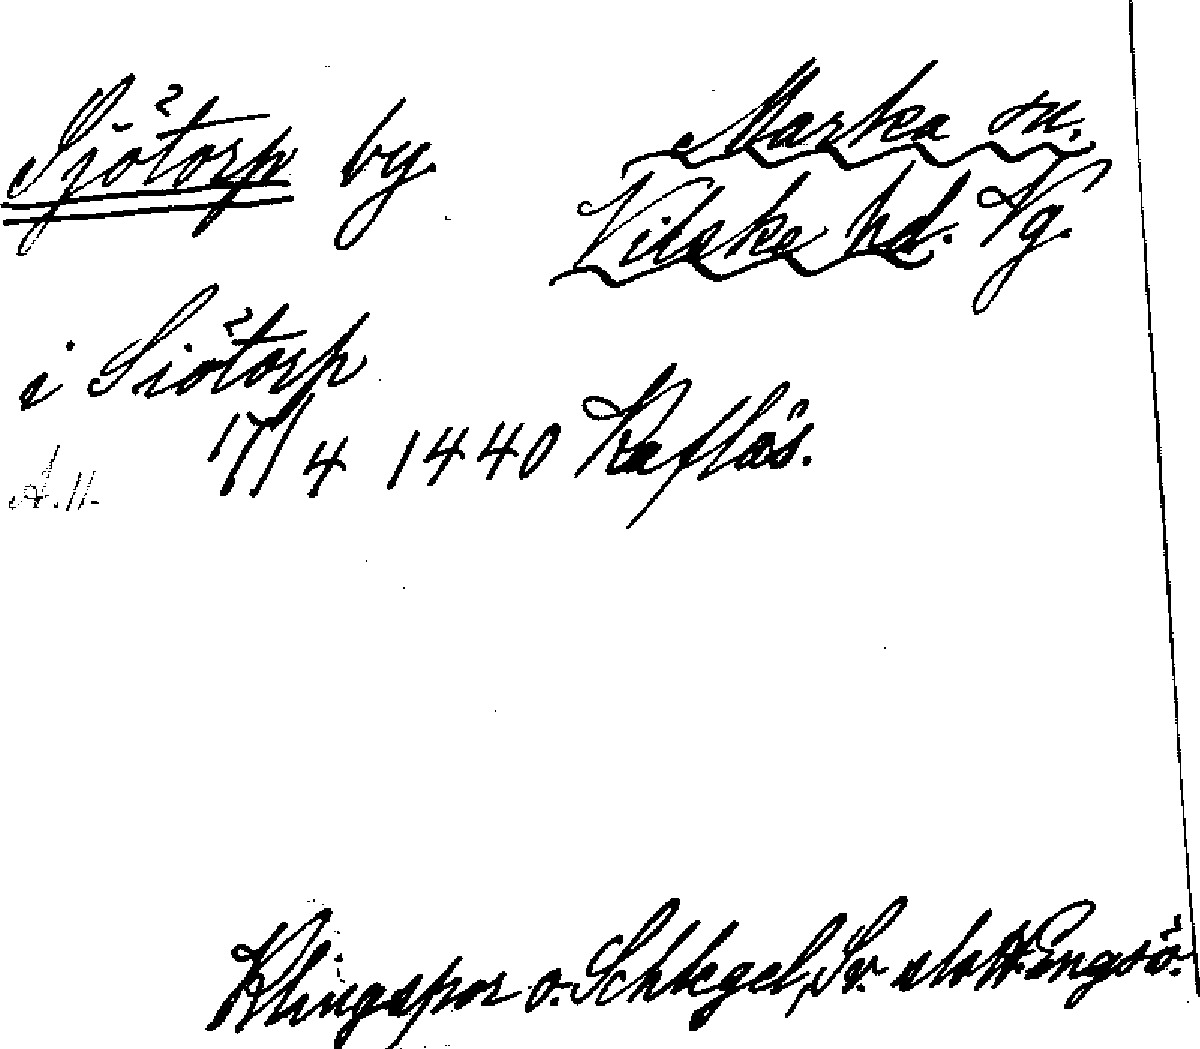 Sjötorp by. Marka sn.
Vilske hd. Vg.
i Siötorp
17/4 1440 Kaflås.
A. 11.
Klingspor o. Schlegel, Sv. slott. Engsö.